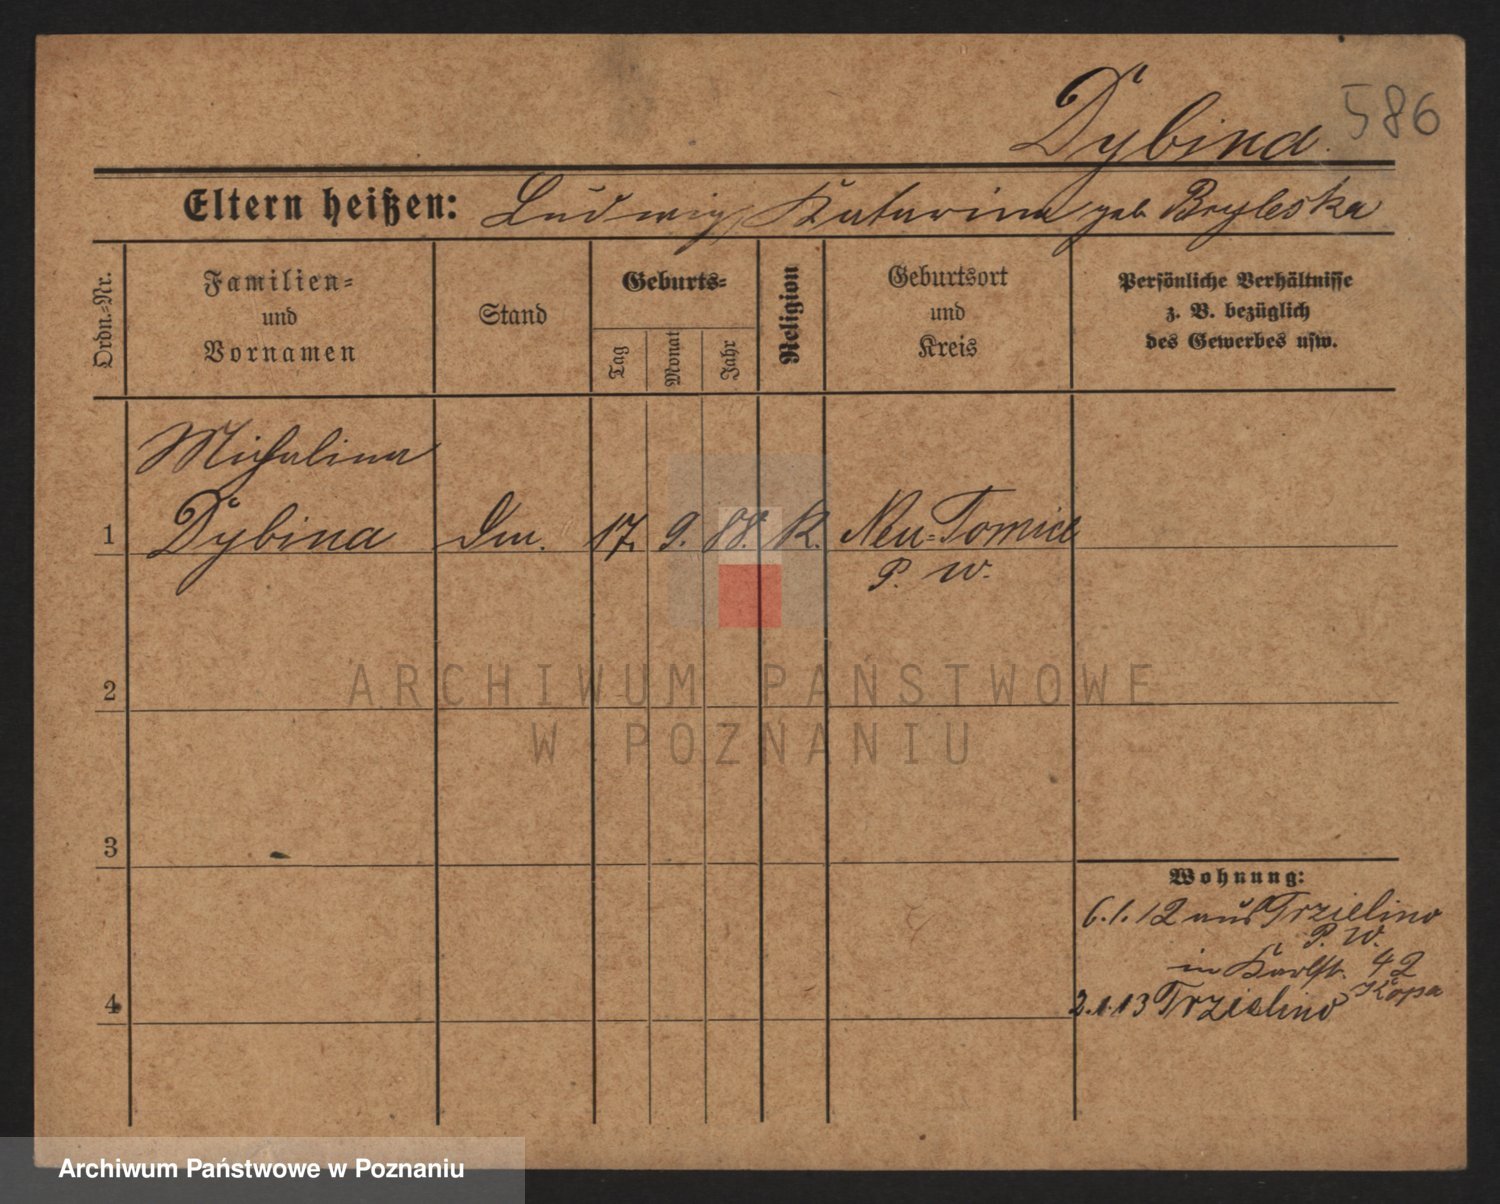 586
Dybina.
Eltern heißen: Ludwig, Katarina geb Bryleska
Ordn.-Nr.
Familien-
und
Vornamen
Stand
Geburts-
Tag
Monat
Jahr
Religion
Geburtsort
und
Kreis
Persönliche Verhältnisse
z. B. bezüglich
des Gewerbes usw.
Michalina
1 Dybina Dm. 17. 9. 88. K. Neu-Tomice
P. W.
2
3
4
Wohnung:
6.1.12 aus Trzielino
P. W.
in Karlst. 42
Kopa
2.1.13 Trzielino
ARCHIWUM PAŃSTWOWE
W POZNANIU
Archiwum Państwowe w Poznaniu